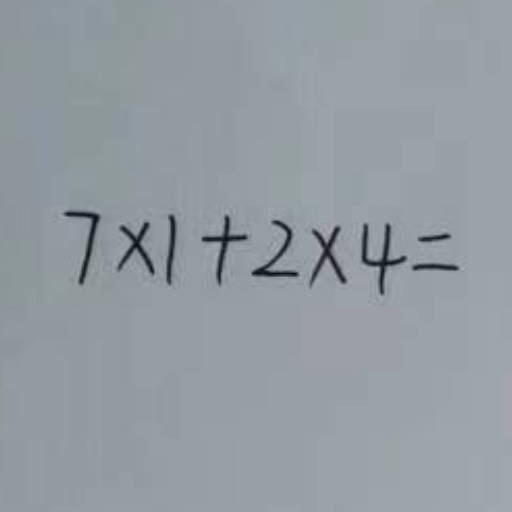 7×1+2×4=